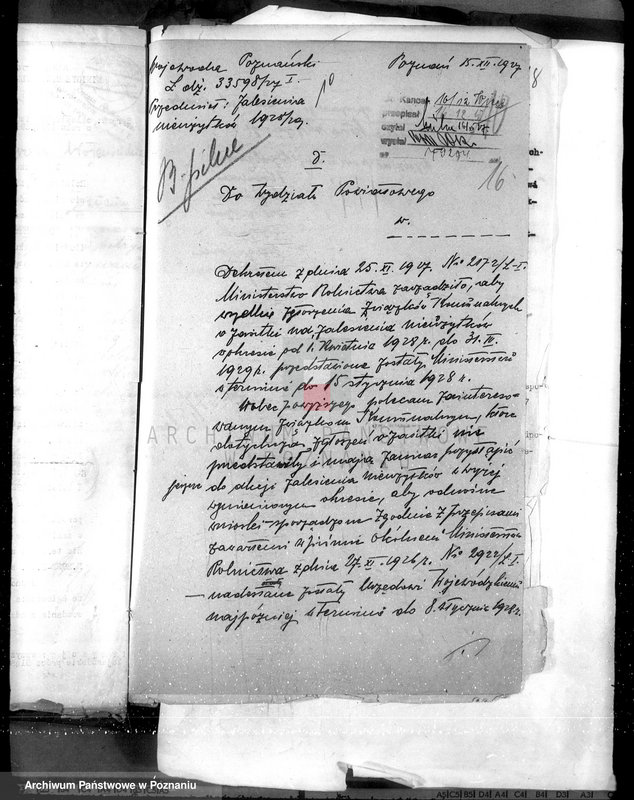 Wojewoda Poznański
L. dz. 33598/27 I.
Przedmiot: Zalesienia
nieużytków 1928/29.
Poznań 15.XII.1927
B. pilne
16
Do Wydziału Powiatowego
w.
Dekretem z dnia 25.XI.1927. No 2172/L-I.
Ministerstwo Rolnictwa zarządziło, aby
wszelkie zgłoszenia Związków Komunalnych
o zasiłki na zalesienia nieużytków
w okresie od 1. Kwietnia 1928 r. do 31.III.
1929 r. przedstawione zostały Ministerstwu
w terminie do 15 stycznia 1928 r.
Wobec powyższego polecam zaintereso-
wanym Związkom Komunalnym, które
dotychczas zgłoszeń o zasiłki nie
przedstawiły i mają zamiar przystąpić
do akcji zalesienia nieużytków w wyżej
wymienionym okresie, aby odnośne
wnioski sporządzone zgodnie z przepisami
zawartemi w piśmie okólnem Ministerstwa
Rolnictwa z dnia 27.XI.1926 r. No 2922/L-I.
nadesłane zostały Urzędowi Wojewódzkiemu
najpóźniej w terminie do 8. stycznia 1928 r.
ARCHIWUM PAŃSTWOWE
W POZNANIU
Archiwum Państwowe w Poznaniu